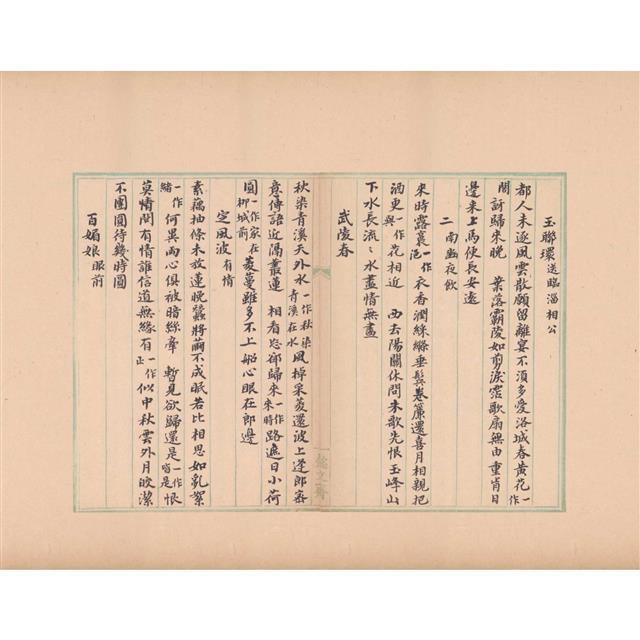 玉聯環 送臨淄相公
都人未逐風雲散願留離宴不須多愛洛城春黃花一作
開訝歸來晚 葉落霸陵如翦淚霑歌扇無由重肯日
邊來上馬便長安遠
二 南幽夜飲
來時露裛一作浥衣香潤綵縧垂鬢卷簾還喜月相親把
酒更一作與花相近 西去陽關休問未歌先恨玉峰山
下水長流〻水盡情無盡
武陵春
秋染青溪天外水一作秋染青溪在水風棹采菱還波上逢郎密
意傳語近隔叢蓮 相看忽卻歸來一作來時路遮日小荷
圓一作家在柳城前菱蔓雖多不上船心眼在郎邊
定風波 有情
素藕抽條未放蓮晚蠶將繭不成眠若比相思如亂絮
一作緒何異兩心俱被暗絲牽 暫見欲歸還是一作皆是恨
莫情閒有情誰信道無緣有一作正似中秋雲外月皎潔
不團圓待幾時圓
百媚娘 眼前
懿文齋